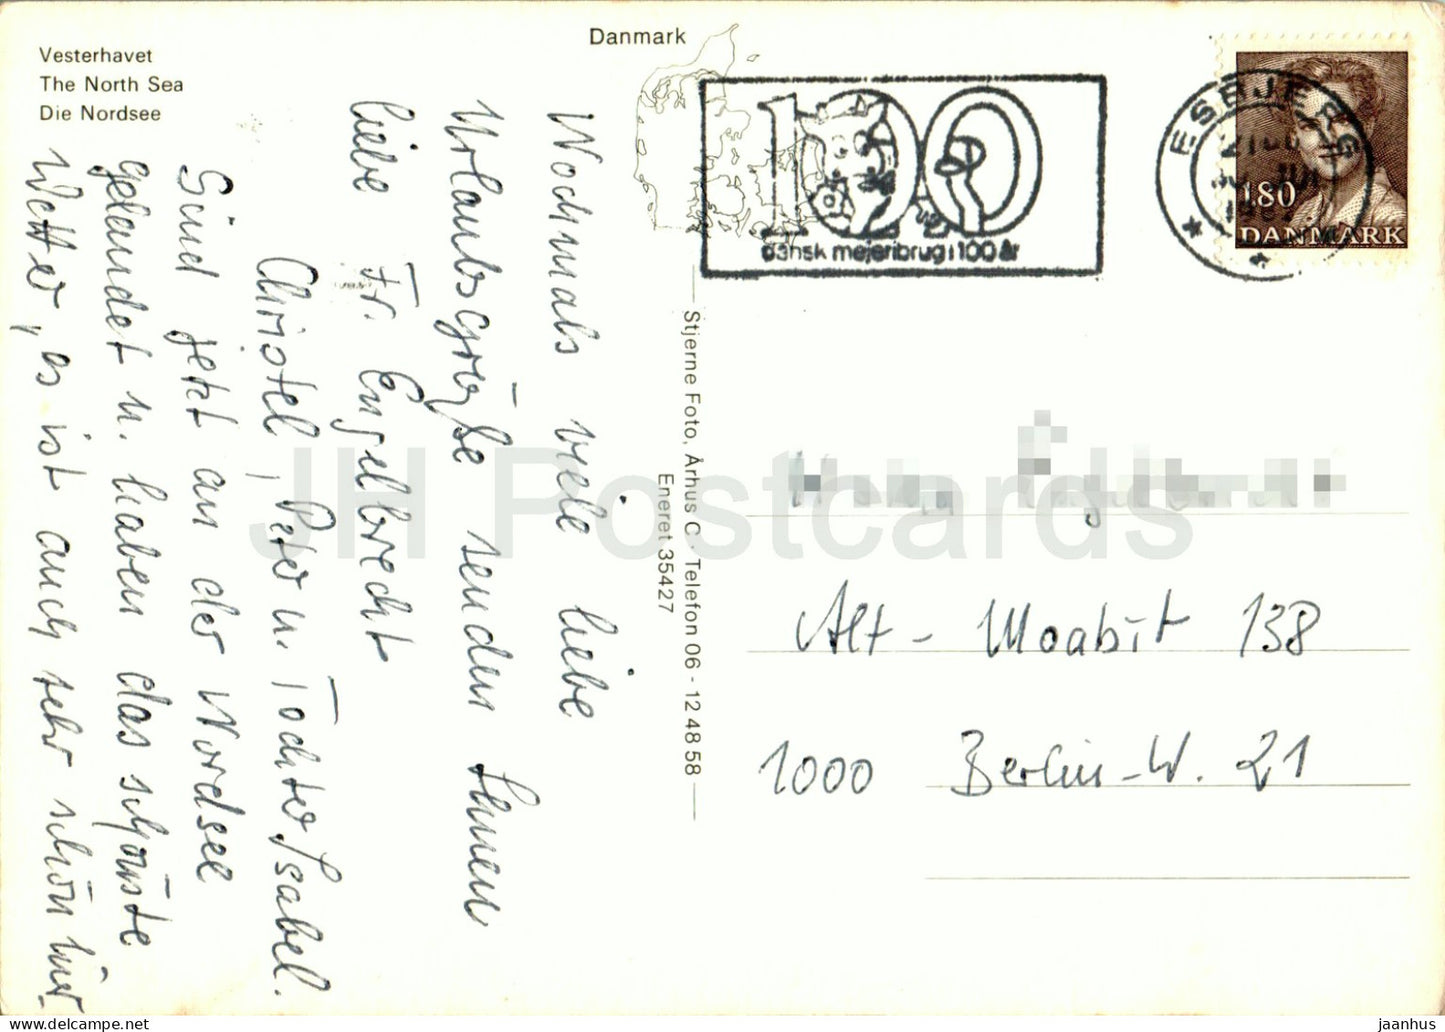 Vesterhavet
The North Sea
Die Nordsee
Danmark
100
dansk mejeribrug i 100 år
ESBJERG
180
DANMARK
Nochmals viele liebe
Urlaubsgrüße senden Ihnen
liebe Fr. Engelbrecht
Christel, Peter u. Tochter Isabel.
Sind jetzt an der Nordsee
gelandet u. haben das schönste
Wetter, es ist auch sehr schön hier.
Stjerne Foto, Århus C. Telefon 06 - 12 48 58
Eneret 35427
Alt - Moabit 138
1000 Berlin-W. 21
JH Postcards
jaanhus / https://www.delcampe.net